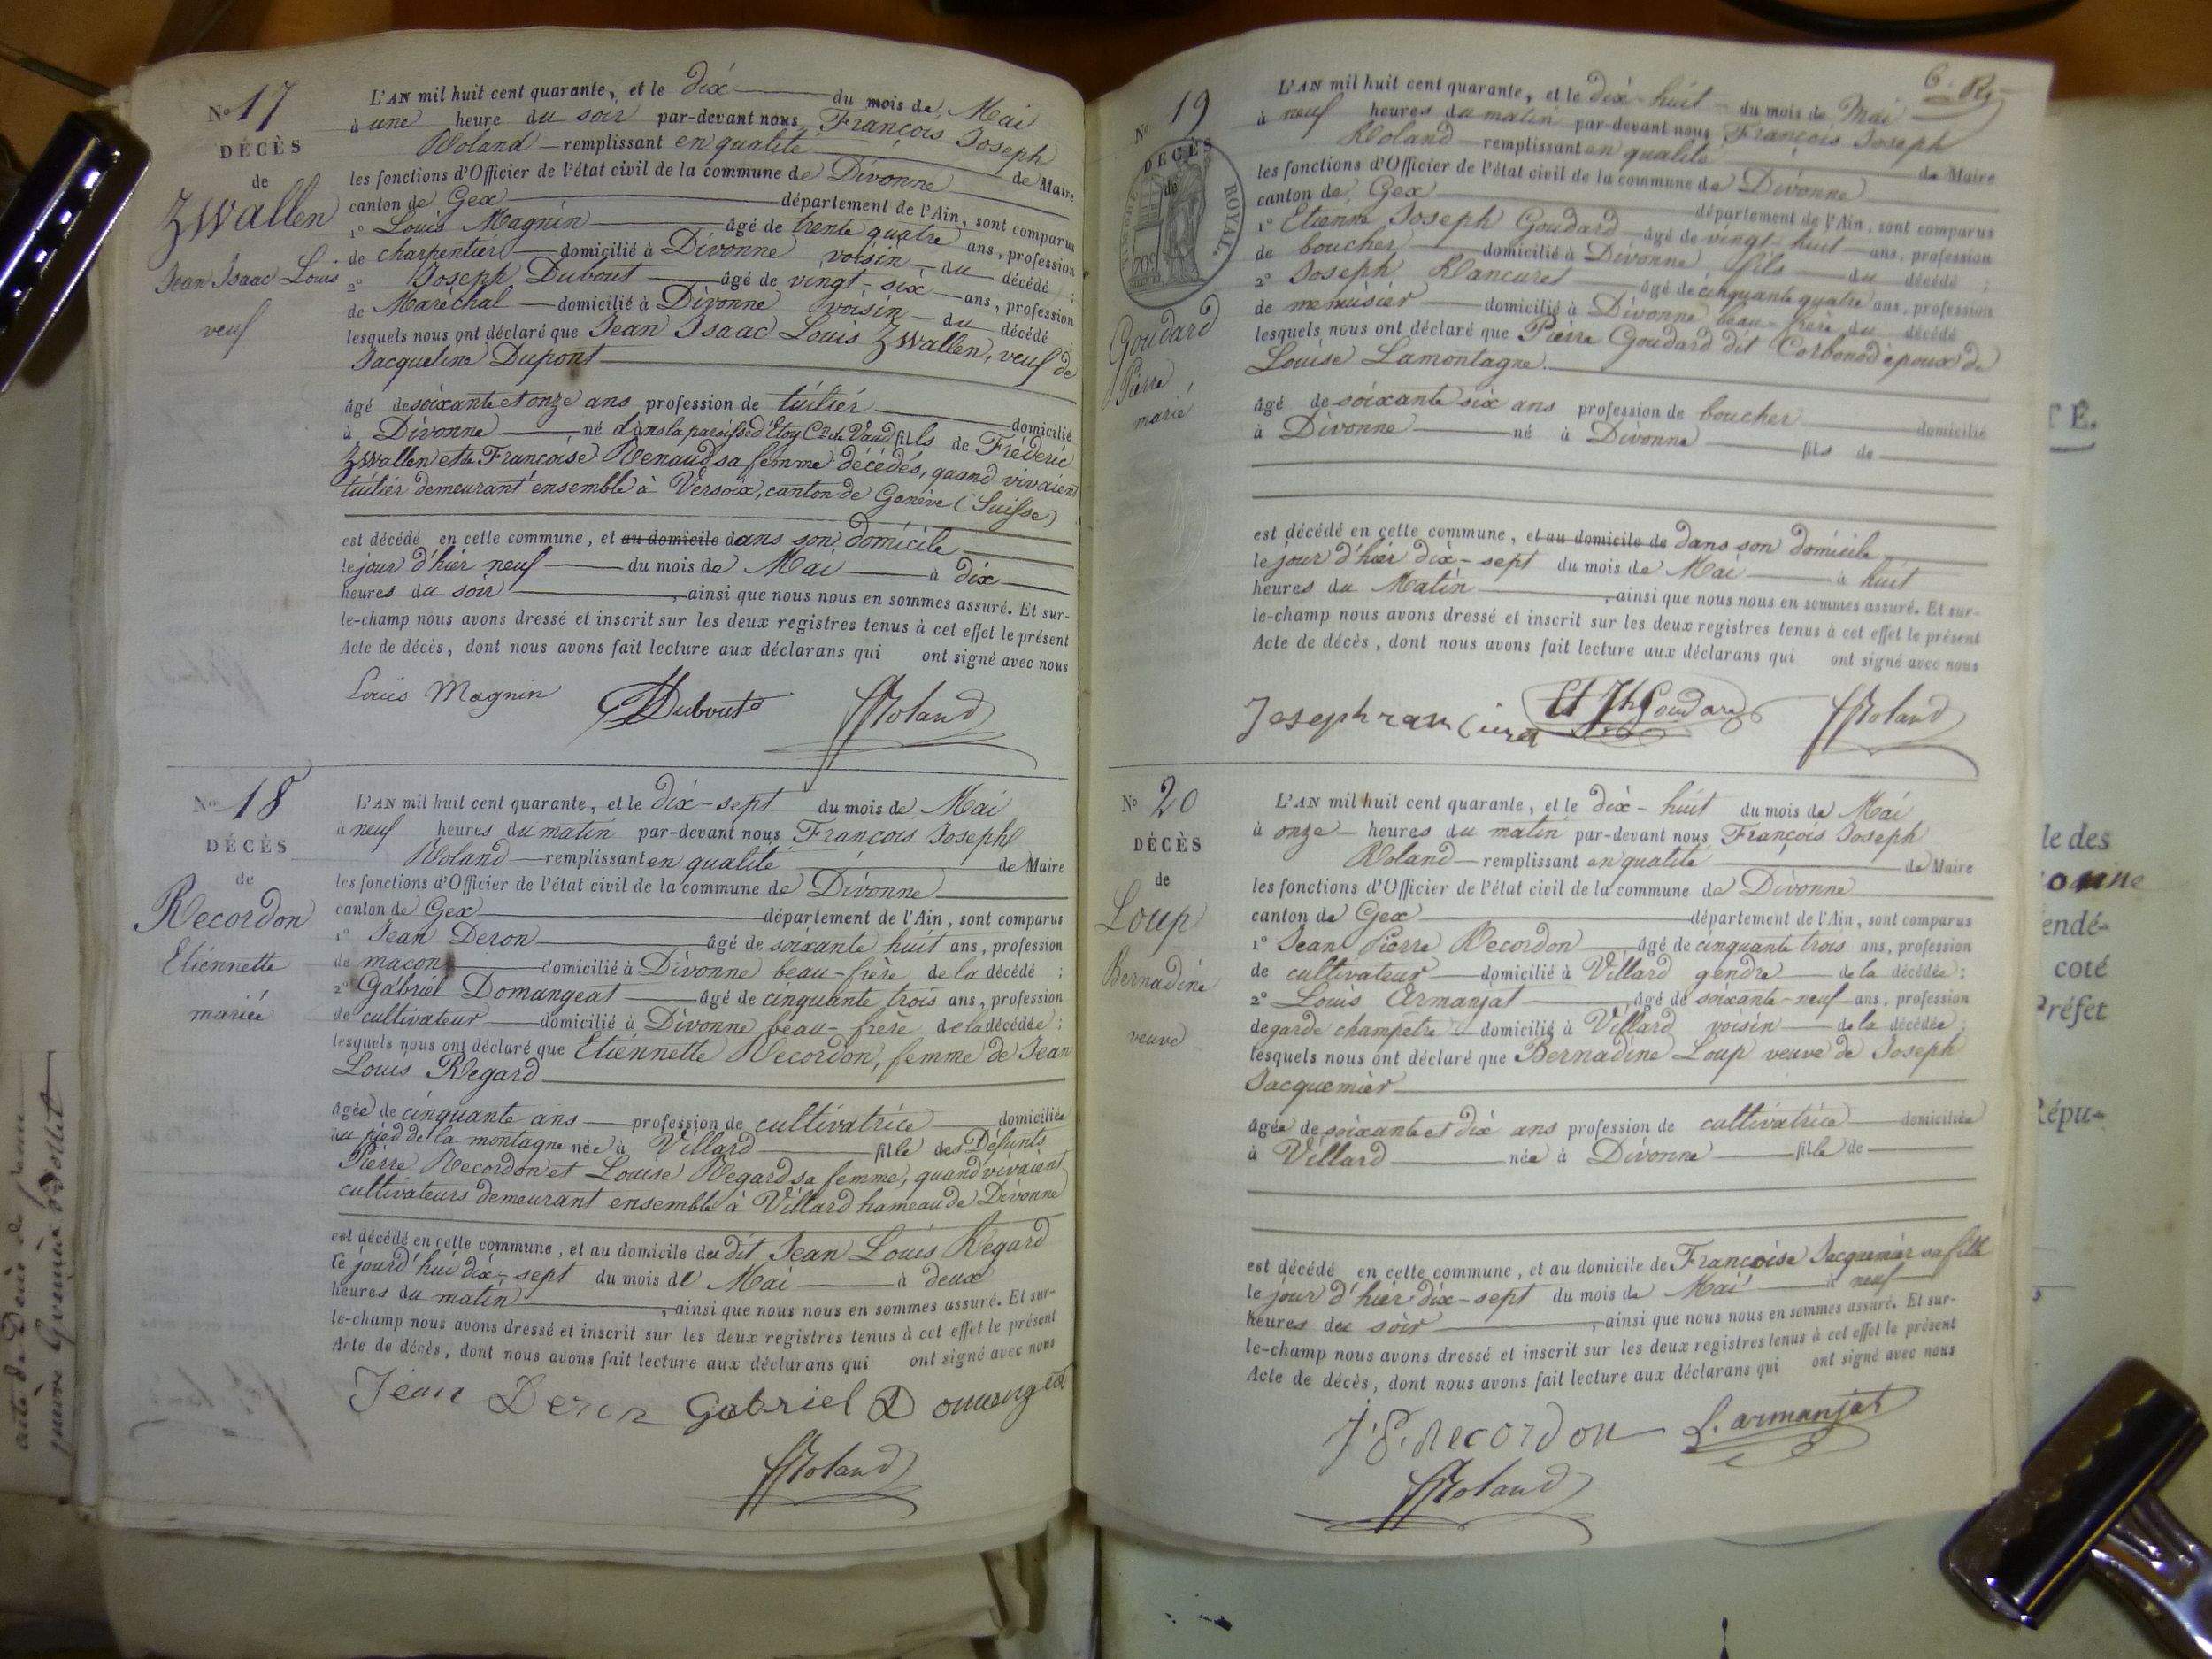 No 17
DÉCÈS
de
Zwallen
Jean Isaac Louis
veuf
L'AN mil huit cent quarante, et le dix du mois de Mai
à une heure du soir par-devant nous François Joseph
Roland remplissant en qualité de Maire
les fonctions d'Officier de l'état civil de la commune de Divonne
canton de Gex département de l'Ain, sont comparus
1° Louis Magnin âgé de trente quatre ans, profession
de charpentier domicilié à Divonne voisin du décédé ;
2° Joseph Dubout âgé de vingt-six ans, profession
de Maréchal domicilié à Divonne voisin du décédé
lesquels nous ont déclaré que Jean Isaac Louis Zwallen, veuf de
Jacqueline Dupont
âgé de soixante et onze ans profession de tuilier domicilié
à Divonne né dans la paroisse d'Etoy Con de Vaud fils de Fréderic
Zwallen et de Françoise Renaud sa femme décédés, quand vivaient
tuilier demeurant ensemble à Versoix, canton de Genève (Suisse)
est décédé en cette commune, et au domicile dans son domicile
le jour d'hier neuf du mois de Mai à dix
heures du soir, ainsi que nous nous en sommes assuré. Et sur-
le-champ nous avons dressé et inscrit sur les deux registres tenus à cet effet le présent
Acte de décès, dont nous avons fait lecture aux déclarans qui ont signé avec nous
Louis Magnin Dubout Roland
No 18
DÉCÈS
de
Recordon
Etiennette
mariée
L'AN mil huit cent quarante, et le dix-sept du mois de Mai
à neuf heures du matin par-devant nous François Joseph
Roland remplissant en qualité de Maire
les fonctions d'Officier de l'état civil de la commune de Divonne
canton de Gex département de l'Ain, sont comparus
1° Jean Deron âgé de soixante huit ans, profession
de maçon domicilié à Divonne beau-frère de la décédé ;
2° Gabriel Domangeat âgé de cinquante trois ans, profession
de cultivateur domicilié à Divonne beau-frère de la décédée ;
lesquels nous ont déclaré que Etiennette Recordon, femme de Jean
Louis Regard
âgée de cinquante ans profession de cultivatrice domiciliée
au pied de la montagne née à Villard fille des Défunts
Pierre Recordon et Louise Regard sa femme, quand vivaient
cultivateurs demeurant ensemble à Villard hameau de Divonne
est décédé en cette commune, et au domicile du dit Jean Louis Regard
le jourd'hui dix-sept du mois de Mai à deux
heures du matin, ainsi que nous nous en sommes assuré. Et sur-
le-champ nous avons dressé et inscrit sur les deux registres tenus à cet effet le présent
Acte de décès, dont nous avons fait lecture aux déclarans qui ont signé avec nous
Jean Deron Gabriel Domangeat
Roland
6.
No 19
DÉCÈS
de
TIMBRE ROYAL.
Goudard
Pierre
marié
L'AN mil huit cent quarante, et le dix-huit du mois de Mai
à neuf heures du matin par-devant nous François Joseph
Roland remplissant en qualité de Maire
les fonctions d'Officier de l'état civil de la commune de Divonne
canton de Gex département de l'Ain, sont comparus
1° Etienne Joseph Goudard âgé de vingt-huit ans, profession
de boucher domicilié à Divonne fils du décédé ;
2° Joseph Rancuret âgé de cinquante quatre ans, profession
de menuisier domicilié à Divonne beau-frère du décédé
lesquels nous ont déclaré que Pierre Goudard dit Corbonod époux de
Louise Lamontagne
âgé de soixante six ans profession de boucher domicilié
à Divonne né à Divonne fils de
est décédé en cette commune, et au domicile de dans son domicile
le jour d'hier dix-sept du mois de Mai à huit
heures du Matin, ainsi que nous nous en sommes assuré. Et sur-
le-champ nous avons dressé et inscrit sur les deux registres tenus à cet effet le présent
Acte de décès, dont nous avons fait lecture aux déclarans qui ont signé avec nous
Joseph rancuret Et Jh Goudard Roland
No 20
DÉCÈS
de
Loup
Bernadine
veuve
L'AN mil huit cent quarante, et le dix-huit du mois de Mai
à onze heures du matin par-devant nous François Joseph
Roland remplissant en qualité de Maire
les fonctions d'Officier de l'état civil de la commune de Divonne
canton de Gex département de l'Ain, sont comparus
1° Jean Pierre Recordon âgé de cinquante trois ans, profession
de cultivateur domicilié à Villard gendre de la décédée ;
2° Louis Armanjat âgé de soixante-neuf ans, profession
de garde champetre domicilié à Villard voisin de la décédée ;
lesquels nous ont déclaré que Bernadine Loup veuve de Joseph
Jacquemier
âgée de soixante et dix ans profession de cultivatrice domiciliée
à Villard née à Divonne fille de
est décédé en cette commune, et au domicile de Françoise Jacquemier sa fille
le jour d'hier dix-sept du mois de Mai à neuf
heures du soir, ainsi que nous nous en sommes assuré. Et sur-
le-champ nous avons dressé et inscrit sur les deux registres tenus à cet effet le présent
Acte de décès, dont nous avons fait lecture aux déclarans qui ont signé avec nous
J. P. Recordon L. armanjat
Roland
TÉ.
le des
onne
endé-
coté
Préfet
Répu-